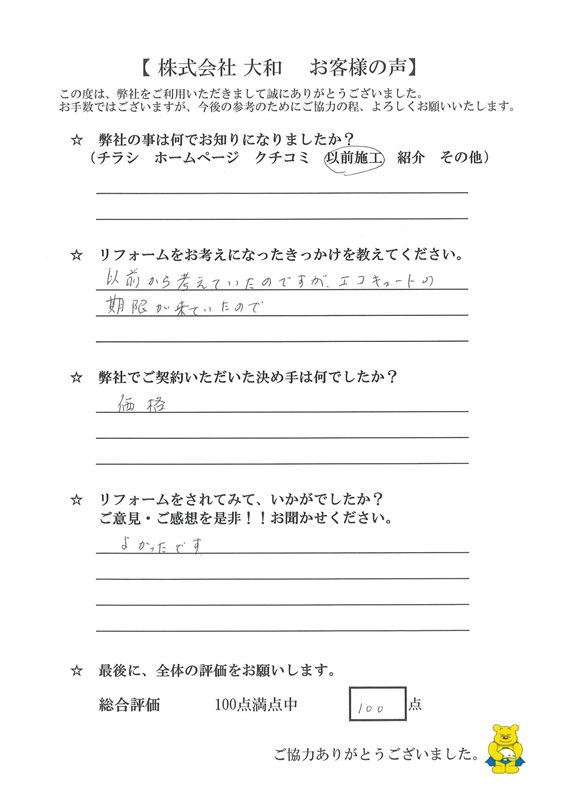 【 株式会社 大和　お客様の声】
この度は、弊社をご利用いただきまして誠にありがとうございました。
お手数ではございますが、今後の参考のためにご協力の程、よろしくお願いいたします。
☆　弊社の事は何でお知りになりましたか？
（チラシ　ホームページ　クチコミ　以前施工　紹介　その他）
☆　リフォームをお考えになったきっかけを教えてください。
以前から考えていたのですが、エコキュートの
期限が来ていたので
☆　弊社でご契約いただいた決め手は何でしたか？
価格
☆　リフォームをされてみて、いかがでしたか？
ご意見・ご感想を是非！！お聞かせください。
よかったです
☆　最後に、全体の評価をお願いします。
総合評価　100点満点中　100　点
ご協力ありがとうございました。